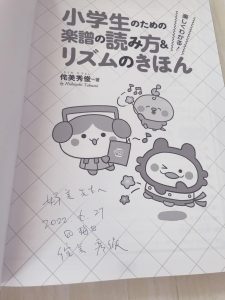 楽しくわかる!
小学生のための
楽譜の読み方&
リズムのきほん
侘美秀俊・著
by Hidetoshi Takumi
2022.6.27
侘美秀俊